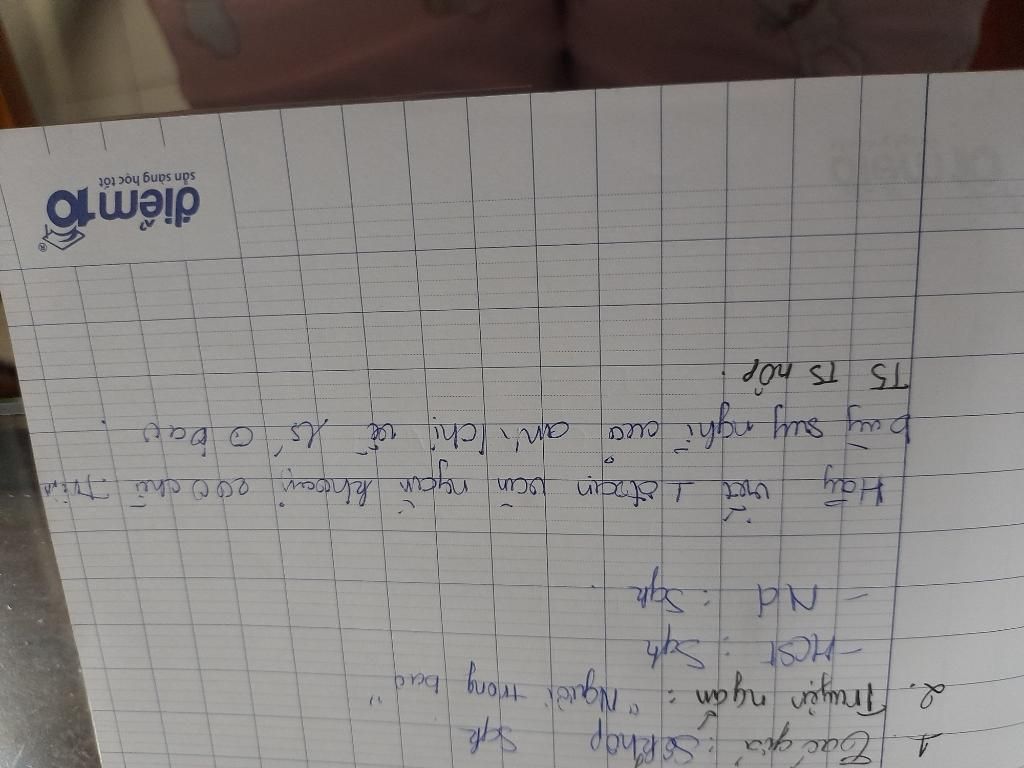 1 Tác giả : Sê Khốp Sgk
2. Truyện ngắn : "Người trong bao"
- HCST : Sgk
- Nd : Sgk
Hãy viết 1 đoạn văn ngắn khoảng 200 chữ Trình
bày suy nghĩ của anh/chị về ls o bao
TS TS hôp.
điểm10
sẵn sàng học tốt